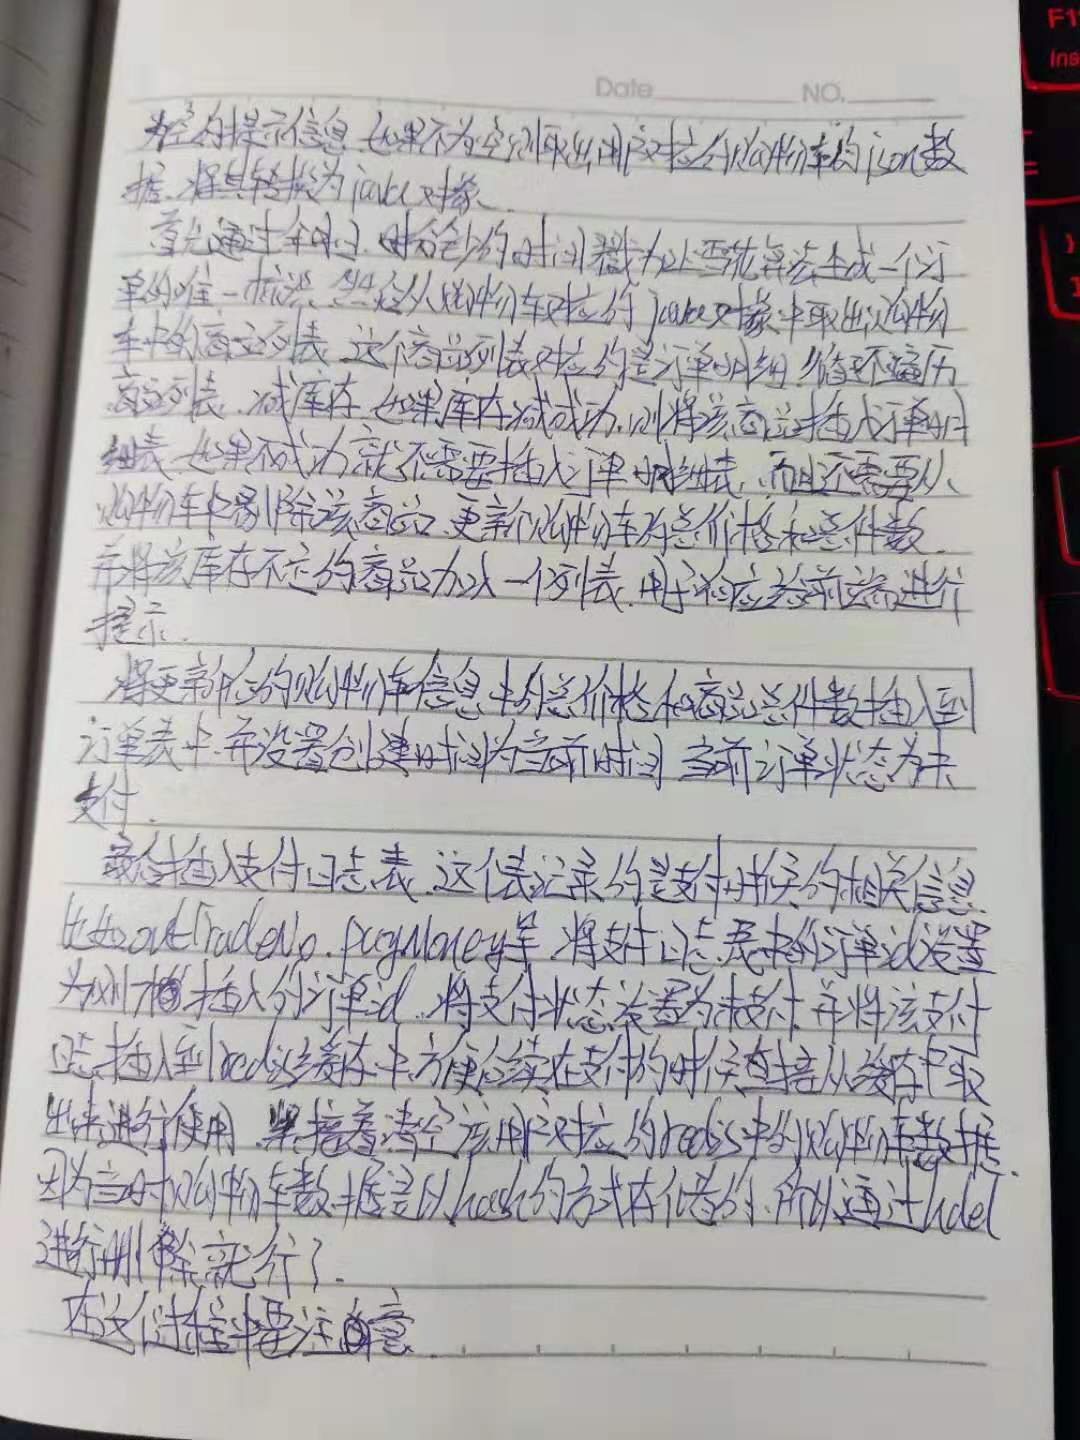 Date NO.
为空的提示信息 如果不为空则取出用户对应的购物车的json数
据.将其转换为java对象.
首先通过年月日.时分秒的时间戳加上雪花算法生成一个订
单的唯一标识.然后从购物车对应的java对象中取出购物
车中的商品列表 这个商品列表对应的是订单明细 循环遍历
商品列表.减库存 如果库存减成功.则将该商品插入订单明
细表 如果不成功就不需要插入订单明细表,而且还需要从
购物车中剔除该商品 更新购物车的总价格和总件数
并将该库存不足的商品加入一个列表.用于响应给前端进行
提示.
将更新后的购物车信息中的总价格和商品总件数插入到
订单表中.并设置创建时间为当前时间 当前订单状态为未
支付.
最后插入支付日志表.这个表记录的是支付时候的相关信息
比如outTradeNo.payMoney等 将支付日志表中的订单id设置
为刚才插入的订单id.将支付状态设置为未支付.并将该支付
日志插入到redis缓存中.方便后续在支付的时候直接从缓存中取
出来进行使用 紧接着清空该用户对应的redis中的购物车数据.
因为当时购物车数据是以hash的方式存储的.所以通过hdel
进行删除就行了.
在这个过程中要注意
F1
Ins